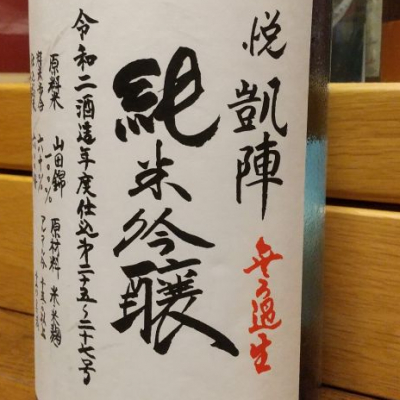 悦 凱陣
無ろ過生
純米吟醸
令和二酒造年度仕込第二十五～二十七号
原料米 山田錦 一〇〇%
六十%
原材料 米・米麹